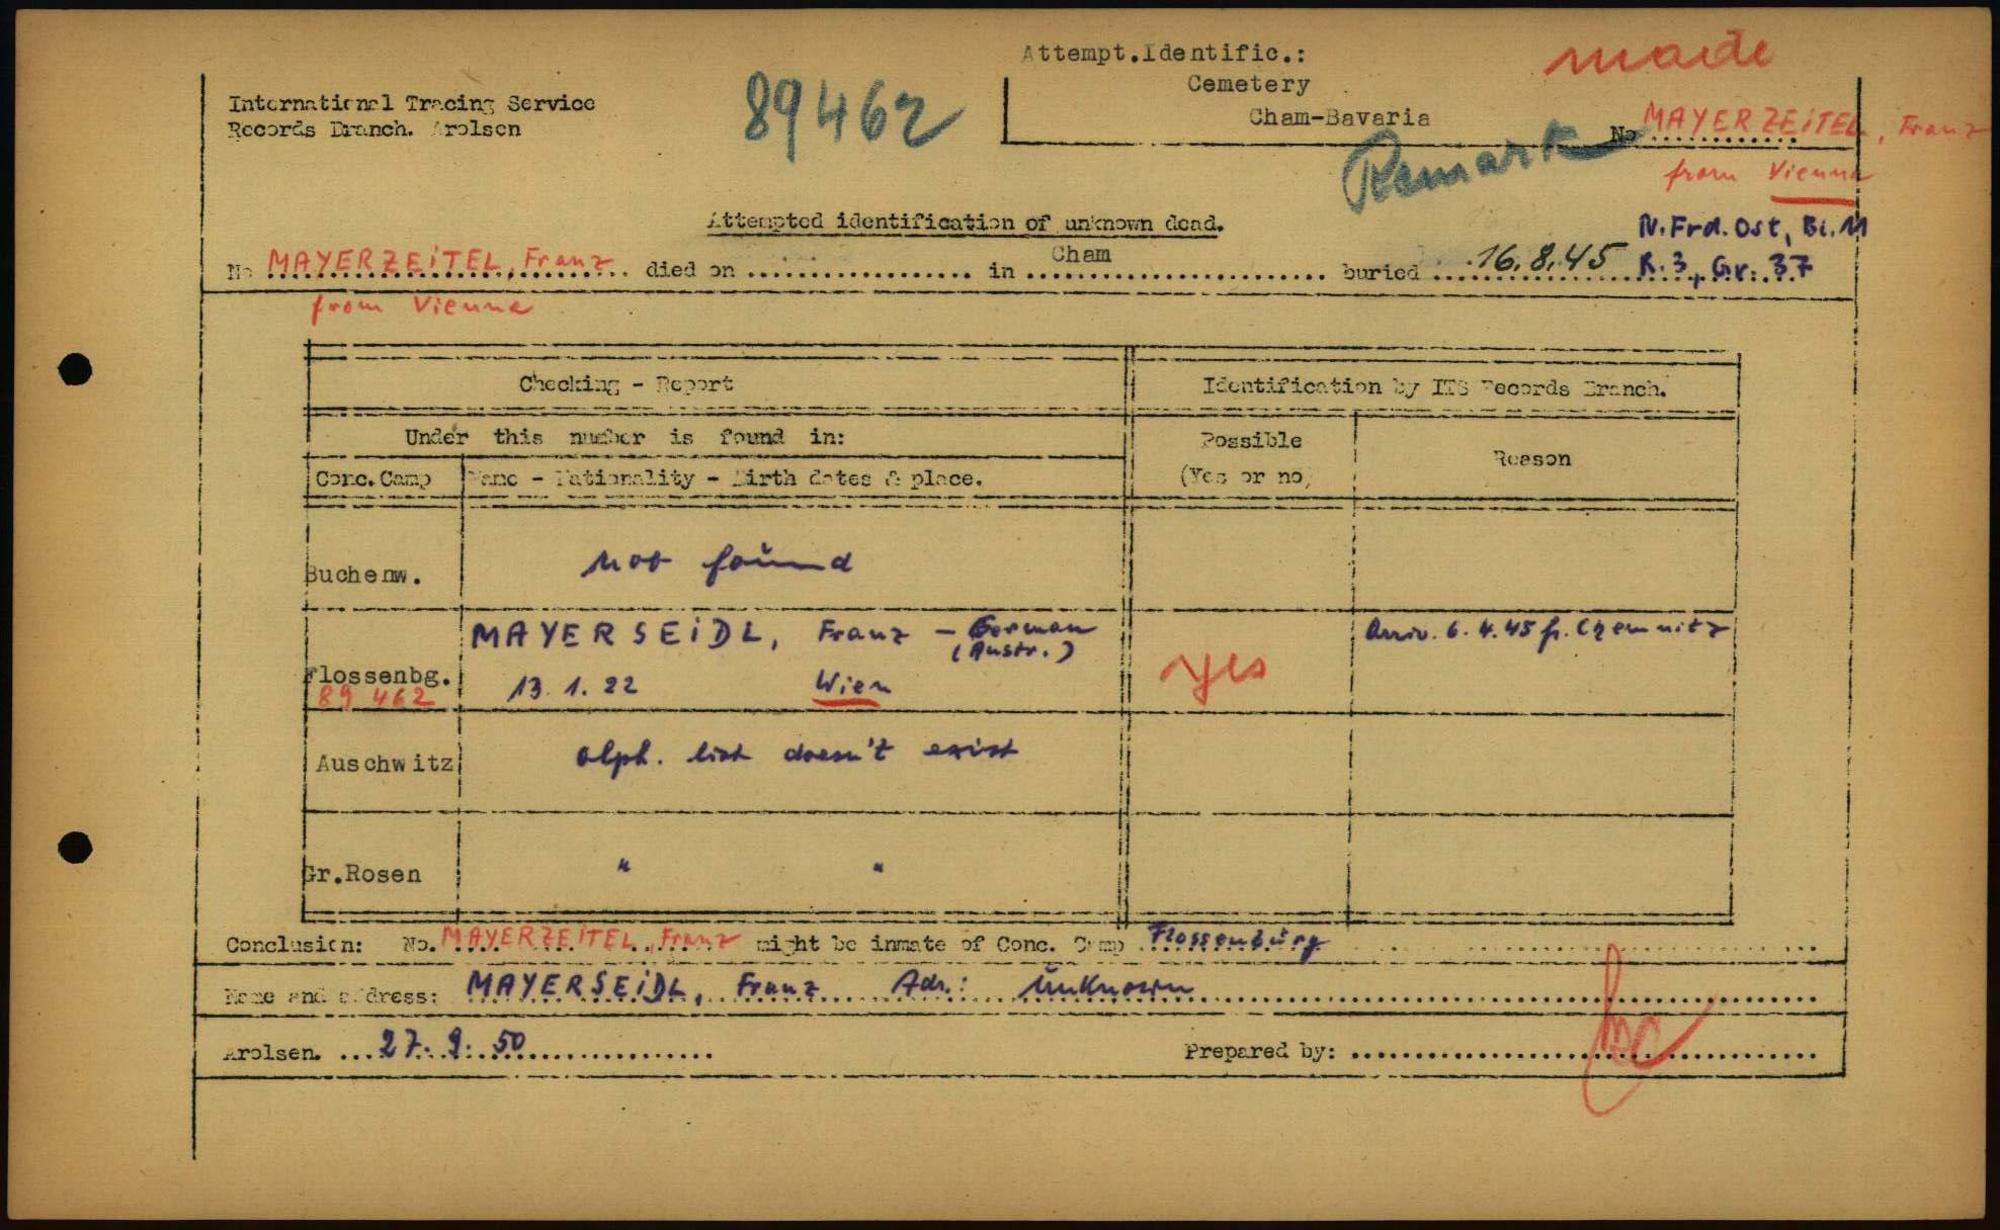 Attempt.Identific.:
made
Cemetery
Cham-Bavaria
International Tracing Service
Records Branch. Arolsen
89462
Remark
No MAYERZEITEL, Franz
from Vienna
Attempted identification of unknown dead.
N.Frd.Ost, Bi.M
No MAYERZEITEL, Franz died on .................. in Cham buried 16.8.45 R.3, Gr. 37
from Vienna
Checking - Report
Identification by ITS Records Branch.
Under this number is found in:
Possible
(Yes or no)
Reason
Conc.Camp
Name - Nationality - Birth dates & place.
Buchenw.
not found
Flossenbg.
89 462
MAYERSEIDL, Franz - German
(Austr.)
13.1.22 Wien
yes
Arriv. 6.4.45 fr. Chemnitz
Auschwitz
alph. list doesn't exist
Gr.Rosen
" "
Conclusion: No. MAYERZEITEL, Franz might be inmate of Conc. Camp Flossenbürg
Name and address: MAYERSEIDL, Franz Adr.: Unknown
Arolsen. 27.9.50
Prepared by: